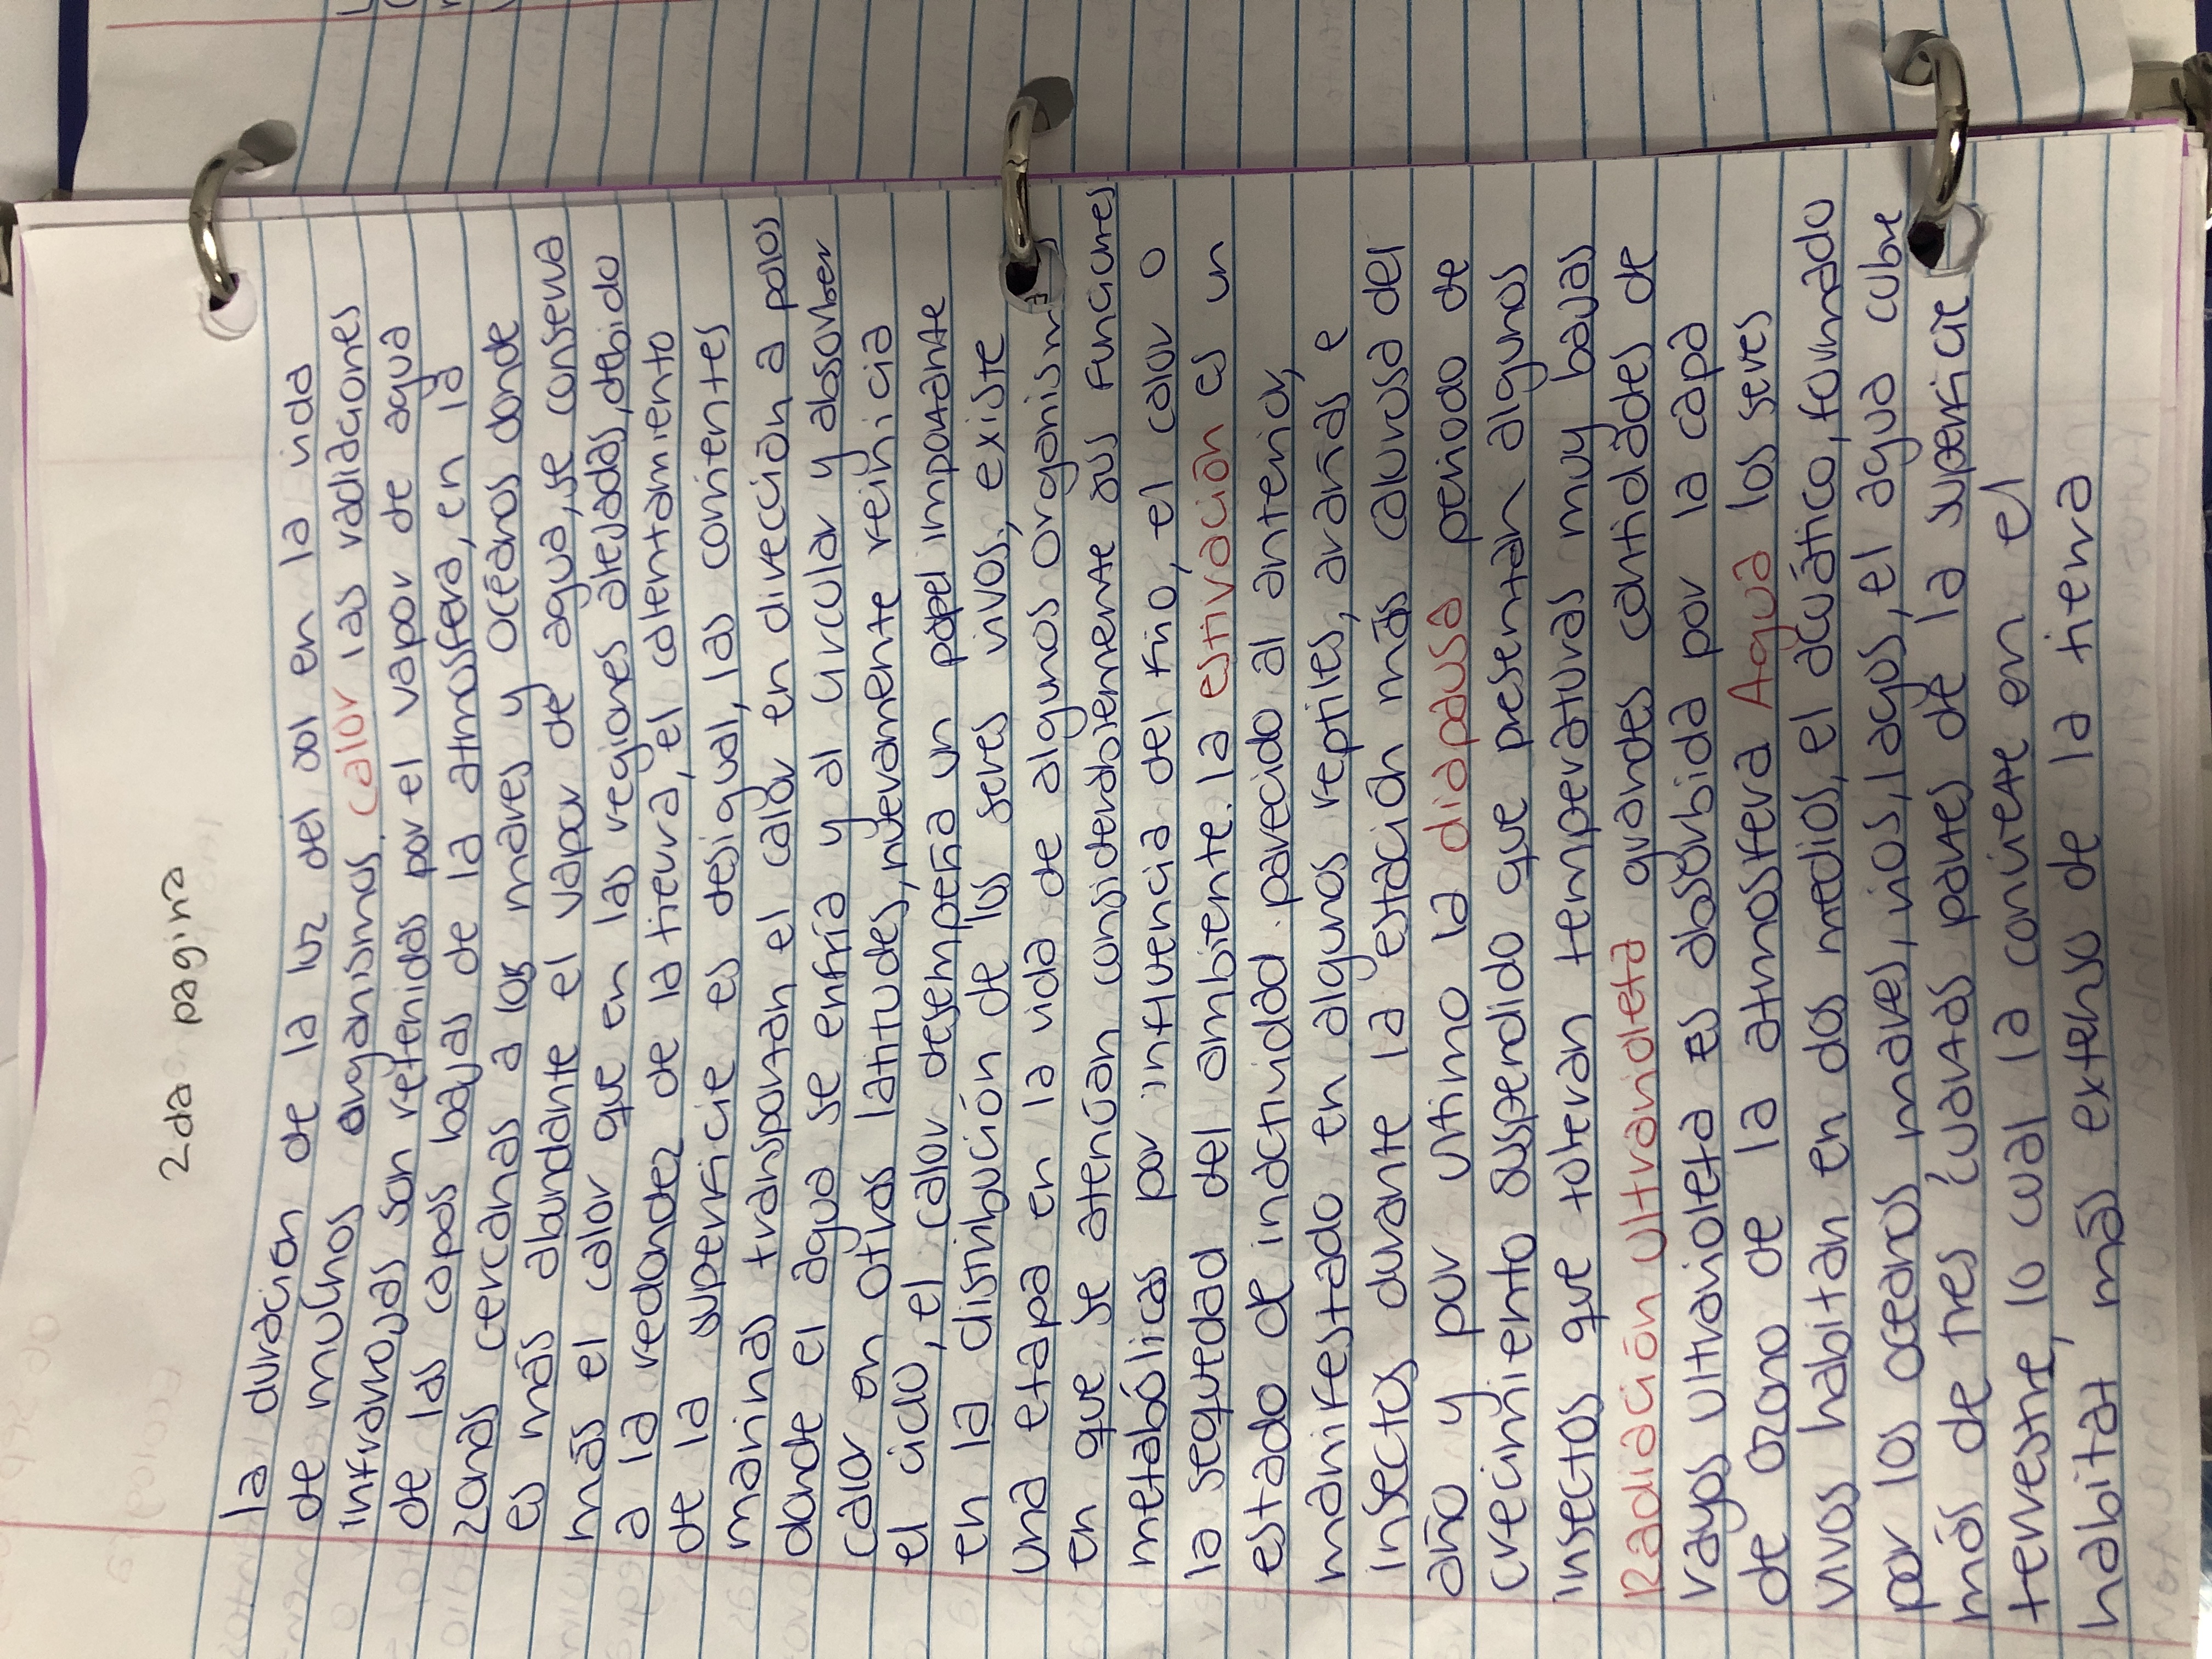 2da pagina
la duración de la luz del sol en la vida
de muchos organismos. calor las radiaciones
infrarrojas son retenidas por el vapor de agua
de las capas bajas de la atmosfera, en la
zonas cercanas a los mares y océanos donde
es más abundante el vapor de agua, se conserva
más el calor que en las regiones alejadas, debido
a la redondez de la tierra, el calentamiento
de la superficie es desigual, las corrientes
marinas transportan el calor en dirección a polos
donde el agua se enfría y al circular y absorber
calor en otras latitudes, nuevamente reinicia
el ciclo, el calor desempeña un papel importante
en la distribución de los seres vivos, existe
una etapa en la vida de algunos organism
en que se atenúan considerablemente sus funciones
metabólicas por influencia del frio, el calor o
la sequedad del ambiente. la estivación es un
estado de inactividad parecido al anterior,
manifestado en algunos reptiles, arañas e
insectos durante la estación más calurosa del
año y por ultimo la diapausa periodo de
crecimiento suspendido que presentan algunos
insectos que toleran temperaturas muy bajas
Radiación ultravioleta grandes cantidades de
rayos ultravioleta es absorbida por la capa
de ozono de la atmosfera Agua los seres
vivos habitan en dos medios, el acuático, formado
por los oceanos, mares, rios, lagos, el agua cubre
más de tres cuartas partes de la superficie
terrestre, lo cual la convierte en el
habitat más extenso de la tierra